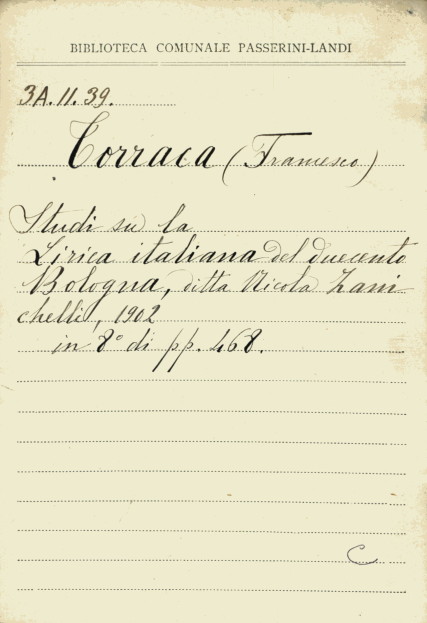 BIBLIOTECA COMUNALE PASSERINI-LANDI
3A.II.39.
Torraca (Francesco)
Studi su la
Lirica italiana del duecento
Bologna, ditta Nicola Zani-
chelli, 1902
in 8° di pp. 468.
C